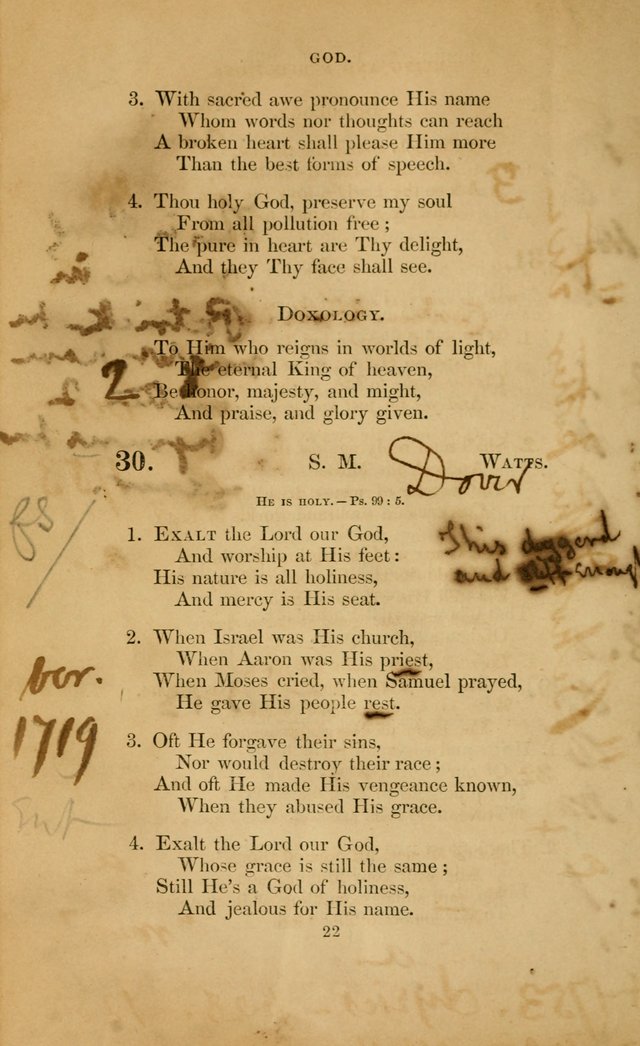 GOD.
3. With sacred awe pronounce His name
Whom words nor thoughts can reach
A broken heart shall please Him more
Than the best forms of speech.
4. Thou holy God, preserve my soul
From all pollution free;
The pure in heart are Thy delight,
And they Thy face shall see.
DOXOLOGY.
To Him who reigns in worlds of light,
The eternal King of heaven,
Be honor, majesty, and might,
And praise, and glory given.
30. S. M. WATTS.
Dover
HE IS HOLY.—Ps. 99 : 5.
1. EXALT the Lord our God,
And worship at His feet:
His nature is all holiness,
And mercy is His seat.
This doggerel
and stiff enough
2. When Israel was His church,
When Aaron was His priest,
When Moses cried, when Samuel prayed,
He gave His people rest.
1719
3. Oft He forgave their sins,
Nor would destroy their race;
And oft He made His vengeance known,
When they abused His grace.
4. Exalt the Lord our God,
Whose grace is still the same;
Still He's a God of holiness,
And jealous for His name.
22